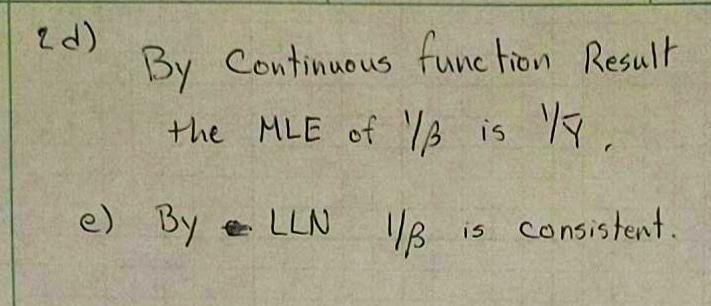 2d)
By Continuous function Result
the MLE of 1/β is 1/Ȳ.
e) By LLN 1/β is consistent.